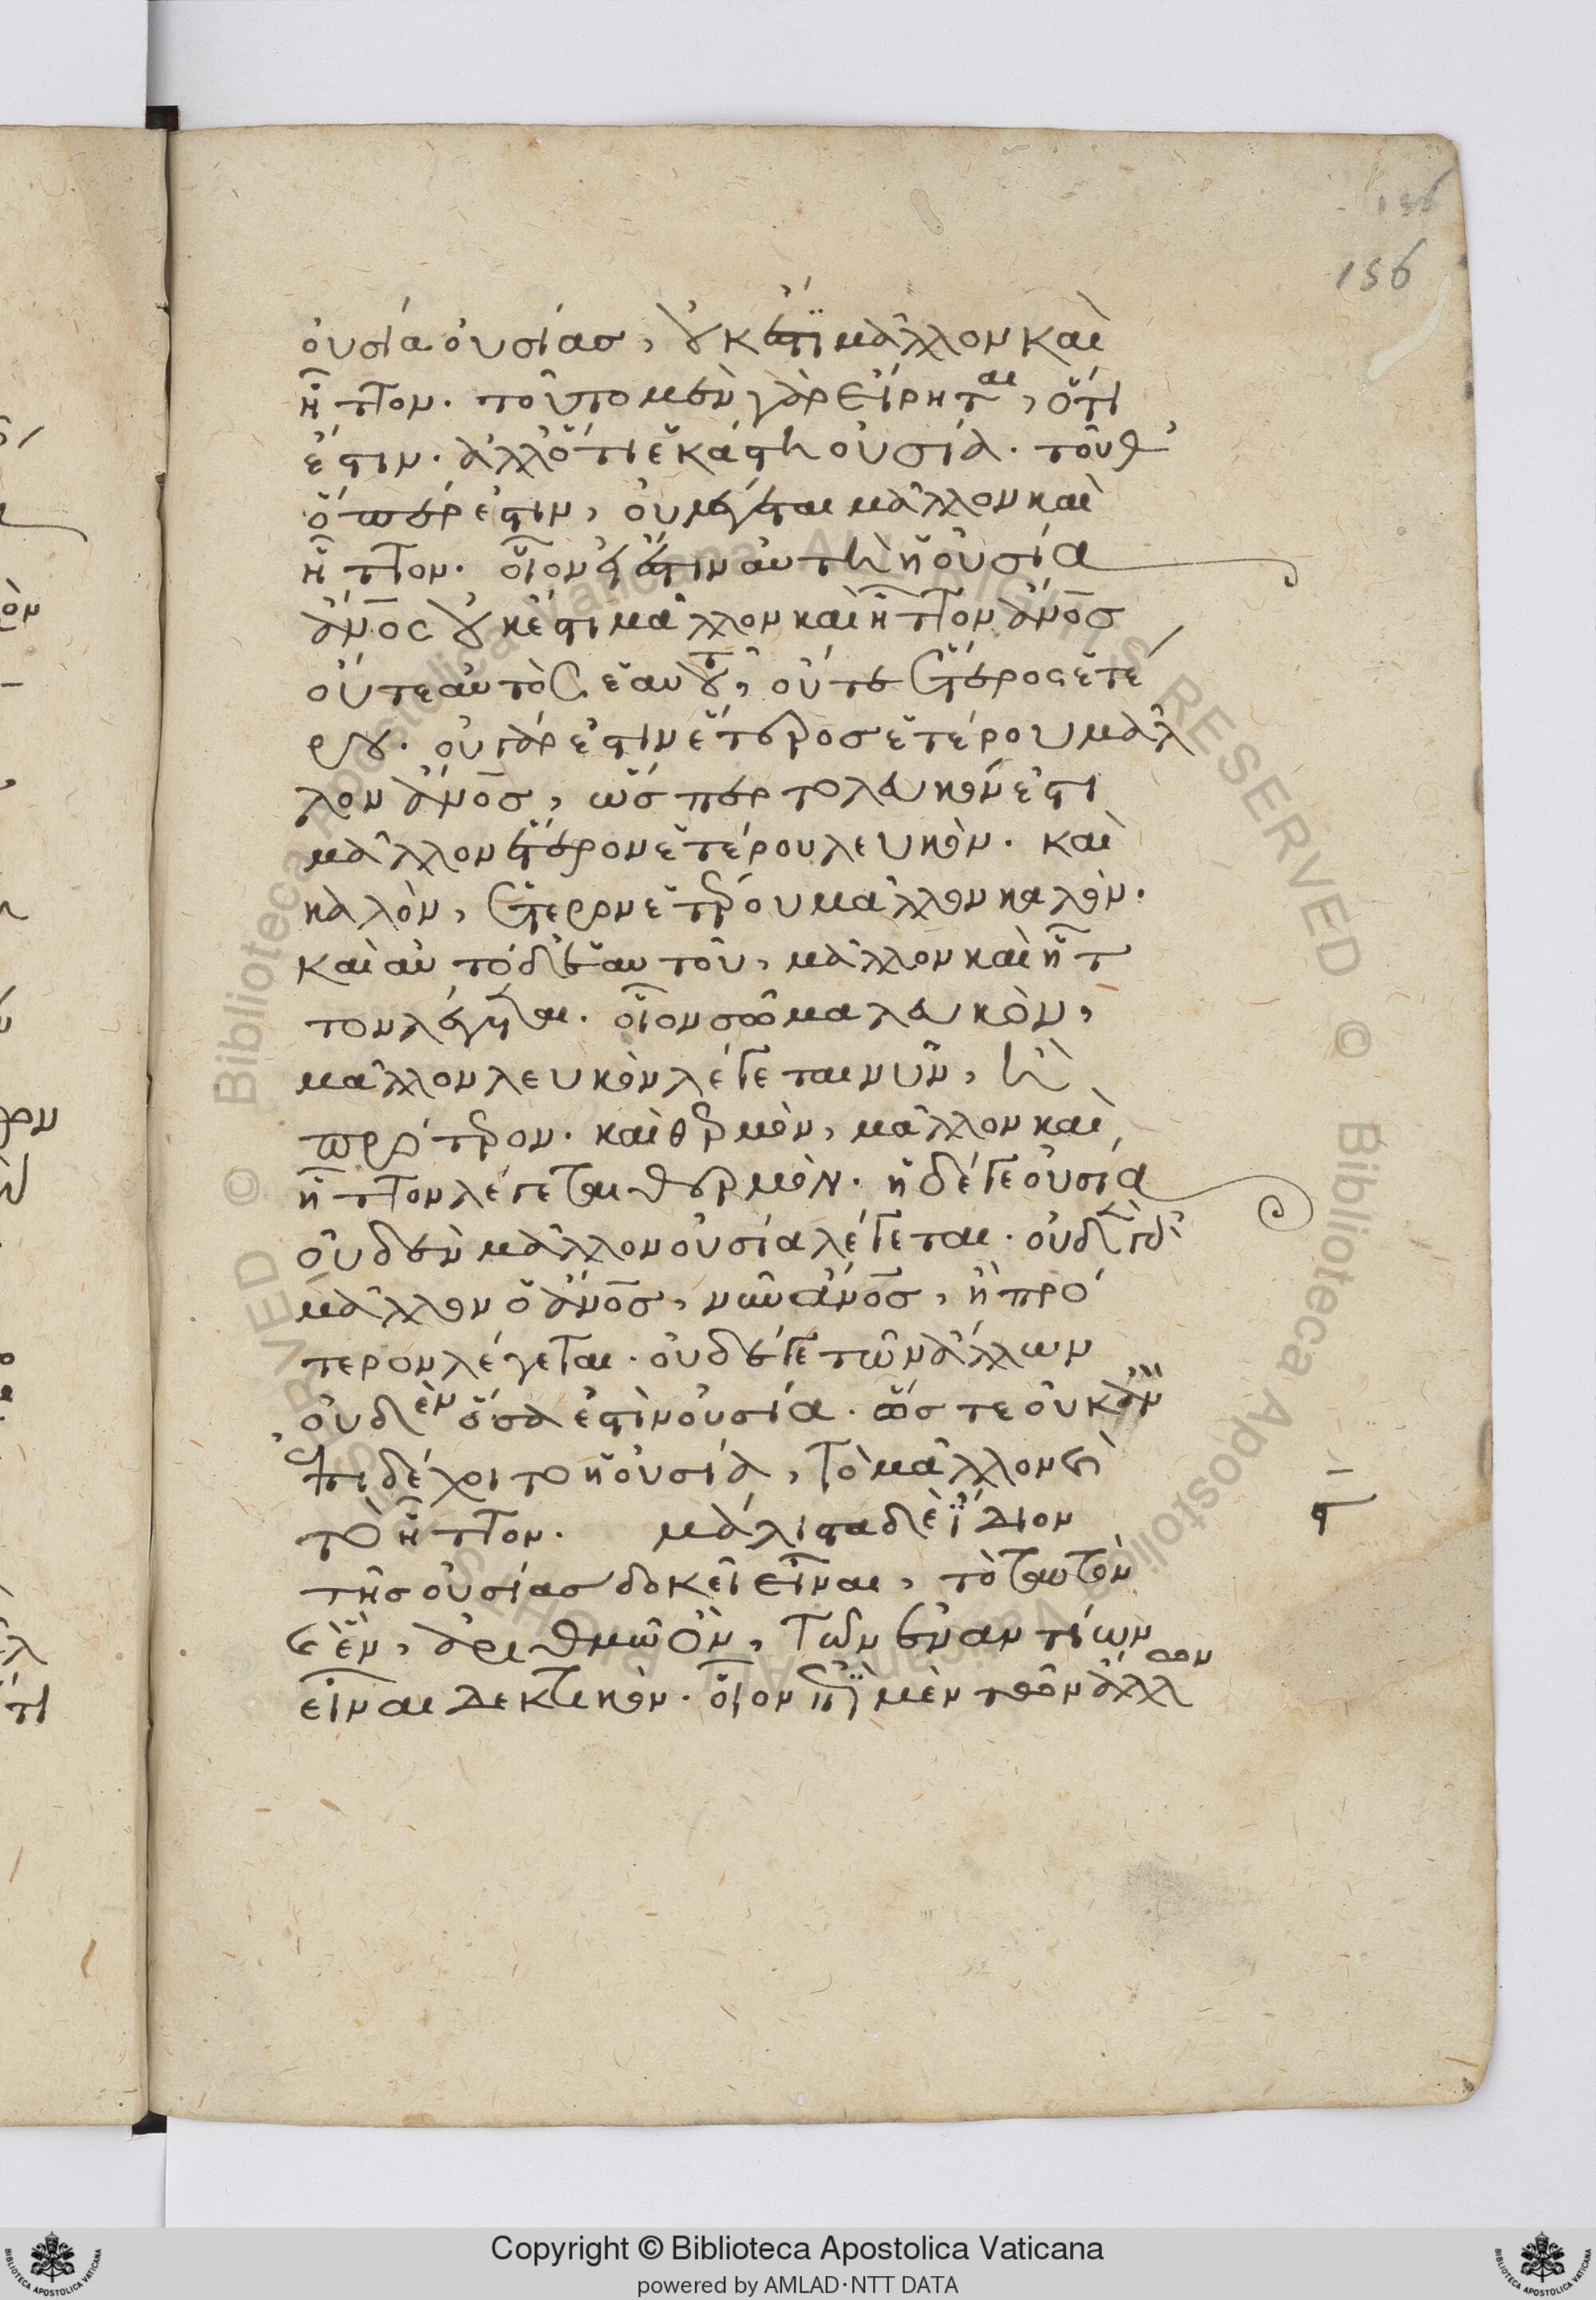 156
οὐσία οὐσίας, οὐκ ἔστι μᾶλλον καὶ
ἧττον. τοῦτο μὲν γὰρ εἴρηται, ὅτι
ἔστιν. ἀλλ' ὅτι ἑκάστη οὐσία. τοῦθ'
ὅπερ ἐστιν, οὐ λέγεται μᾶλλον καὶ
ἧττον. οἷον εἰ ἔστιν αὐτὴ ἡ οὐσία
ἄν̅ος οὐκ ἔστι μᾶλλον καὶ ἧττον ἄν̅ος
οὔτε αὐτὸς ἑαυτοῦ, οὔτε ἕτερος ἑτέ
ρου. οὐ γάρ ἐστιν ἕτερος ἑτέρου μᾶλ
λον ἄν̅ος, ὥσπερ τὸ λευκόν ἐστι
μᾶλλον ἕτερον ἑτέρου λευκὸν. καὶ
καλὸν, ἕτερον ἑτέρου μᾶλλον καλὸν.
καὶ αὐτὸ δὲ ἑαυτοῦ, μᾶλλον καὶ ἧτ
τον λέγεται. οἷον σῶμα λευκὸν,
μᾶλλον λευκὸν λέγεται νῦν, ἢ
πρότερον. καὶ θερμὸν, μᾶλλον καὶ
ἧττον λέγεται θερμὸν. ἡ δέ γε οὐσία
οὐδὲν μᾶλλον οὐσία λέγεται. οὐδὲ γὰρ
μᾶλλον ὁ ἄν̅ος, νῦν ἄν̅ος, ἢ πρό
τερον λέγεται. οὐδέ γε τῶν ἄλλων
οὐδὲν ὅσα ἐστὶν οὐσία. ὥστε οὐκ ἂν
ἐπιδέχοιτο ἡ οὐσία, τὸ μᾶλλον καὶ
τὸ ἧττον. μάλιστα δὲ ἴδιον
τῆς οὐσίας δοκεῖ εἶναι, τὸ ταυτὸν
καὶ ἓν, ἀριθμῷ ὂν, τῶν ἐναντίων
εἶναι δεκτικὸν. οἷον ἐπὶ μὲν τῶν ἄλλων
Copyright © Biblioteca Apostolica Vaticana
powered by AMLAD·NTT DATA